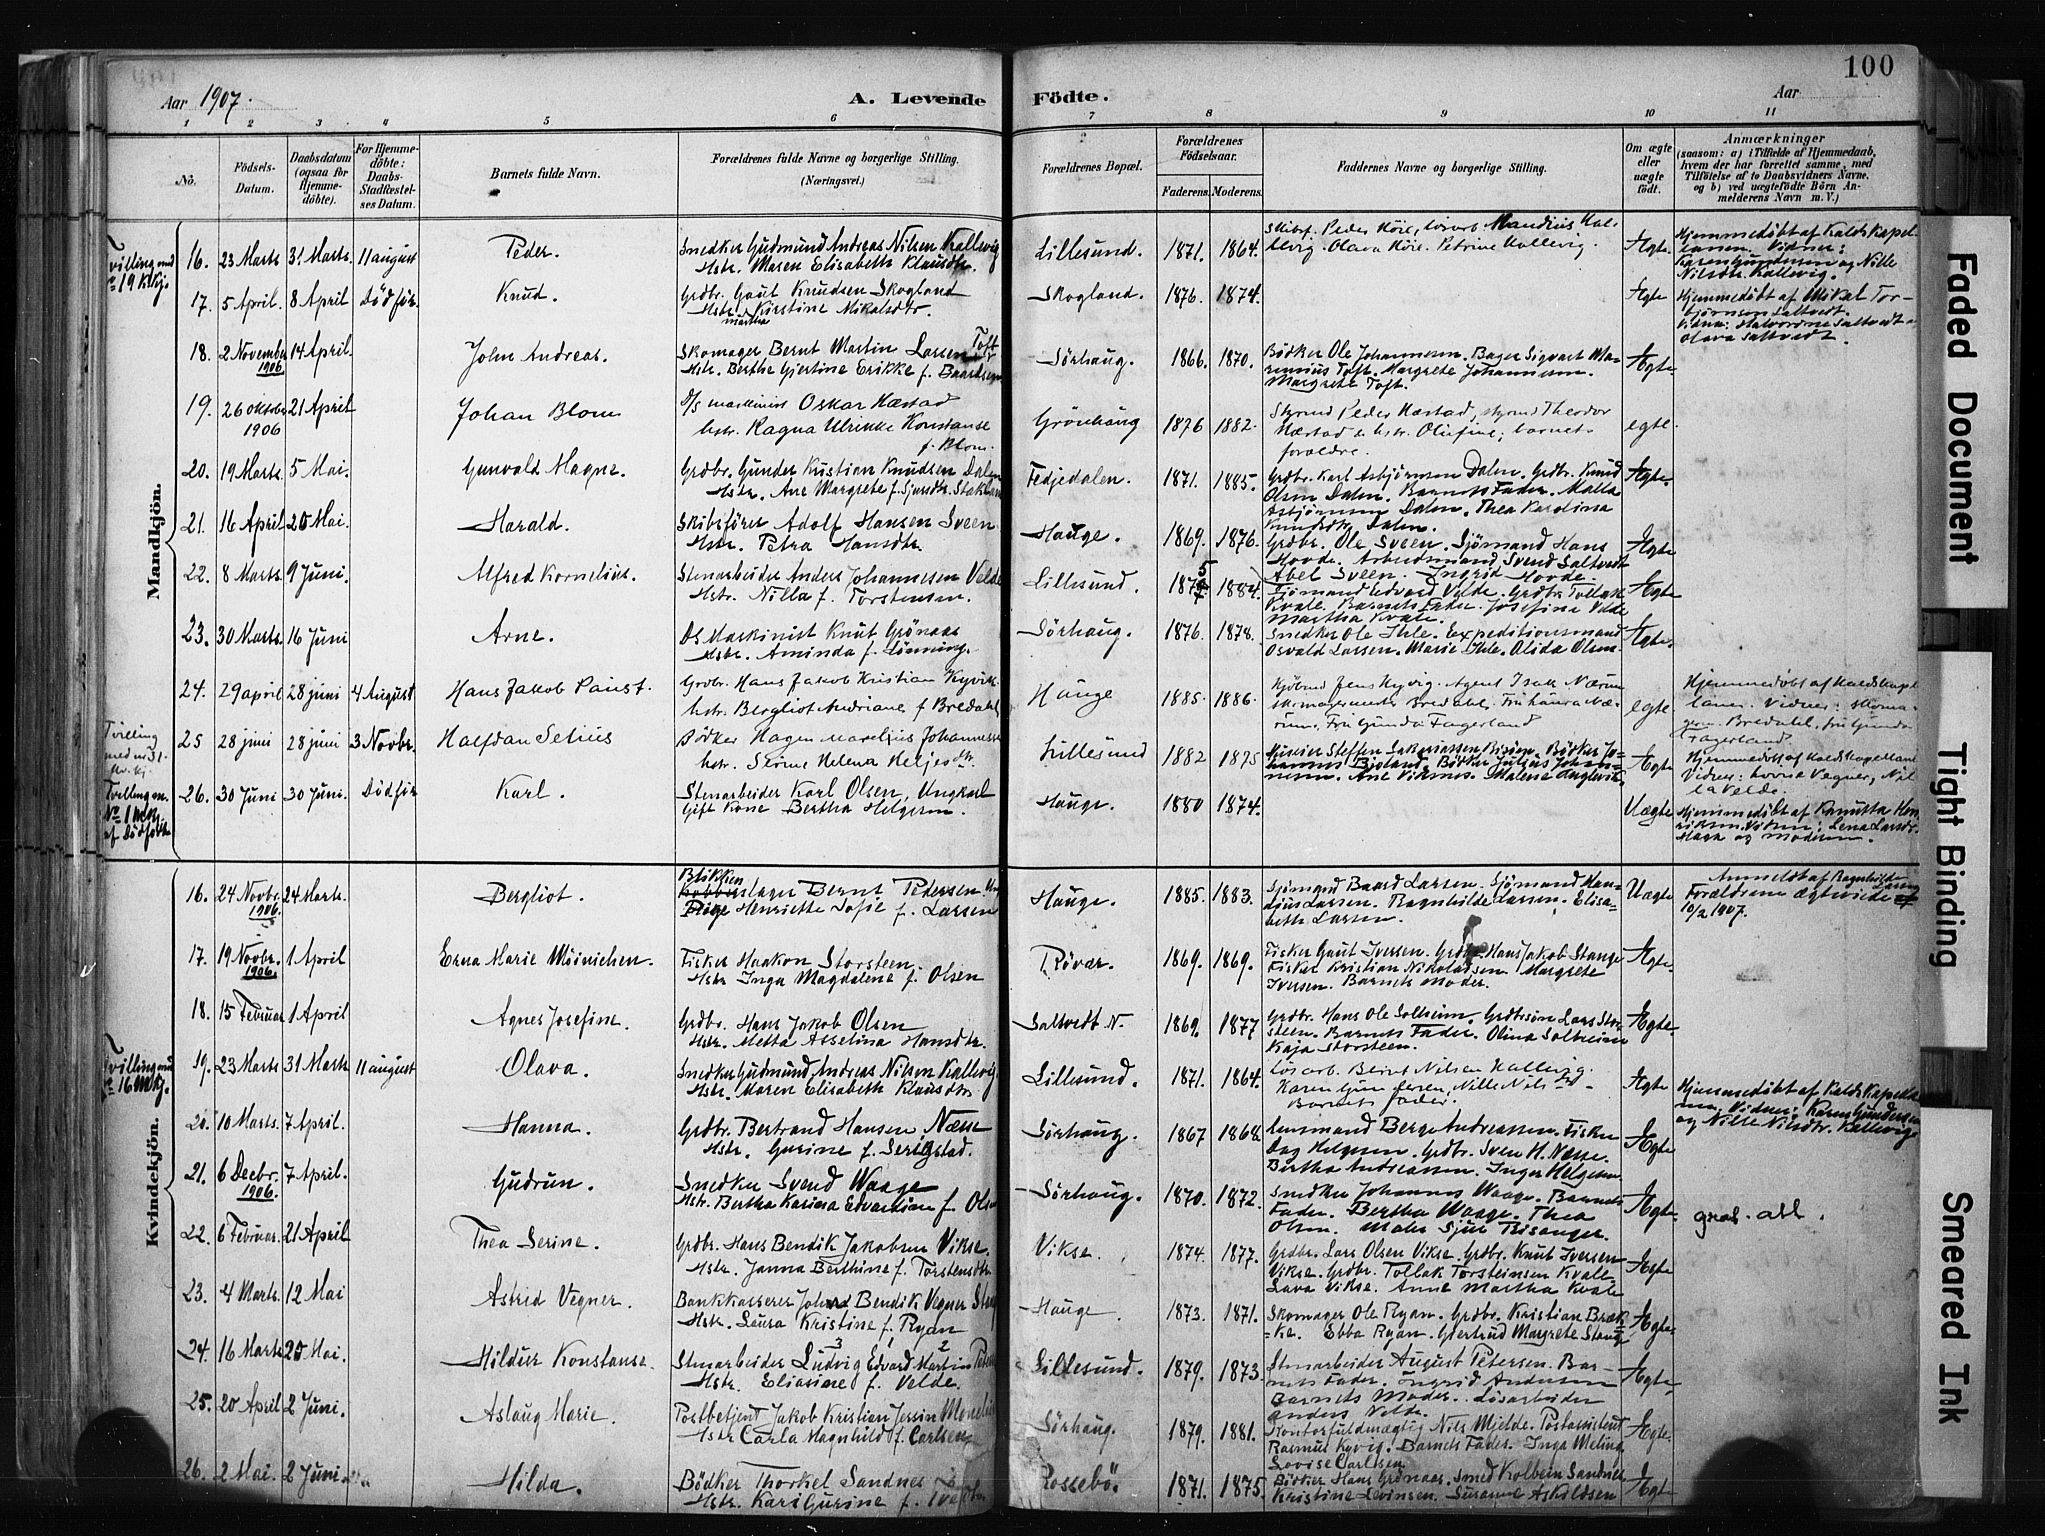 100
Aar 1907.
A. Levende Födte.
Aar
1 2 3 4 5 6 7 8 9 10 11
No.
Födsels-Datum.
Daabsdatum (ogsaa for Hjemmedöbte).
For Hjemmedöbte: Daabs-Stadfæstelses Datum.
Barnets fulde Navn.
Forældrenes fulde Navne og borgerlige Stilling. (Næringsvei.)
Forældrenes Bopæl.
Forældrenes Födselsaar.
Faderens. Moderens.
Faddernes Navne og borgerlige Stilling.
Om ægte eller uægte födt.
Anmærkninger
(saasom: a) i Tilfælde af Hjemmedaab, hvem der har forrettet samme, med Tilföielse af to Daabsvidners Navne, og b) ved uægtefödte Börn Anmelderens Navn m. V.)
Mandkjön.
Tvilling med No 19 Kvkj.
16. 23 Marts 31 Marts. 11 august Peder. Snedker Gudmund Andreas Nilsen Kallevig
Hstr. Maren Elisabeth Klausdtr. Lillesund. 1871. 1864. Olava Höie. Petrine Kallevig. Ægte Hjemmedöbt af Kaldskapellanen. Vidner: Karen Gundersen og Nille Nilsdtr. Kallevig.
17. 5 April. 8 April Dödför. Knud. Grdbr. Gaut Knudsen Skogland
Hstr. Martha Kirstine Mikalsdtr. Skogland. 1876. 1874. Ægte Hjemmedöbt af Mikal Torbjörnsen Saltvedt.
Olava Saltvedt.
18. 2 November 1906 14 April. John Andreas. Skomager Bernt Martin Larsen Toft
Hstr. Berthe Gjertine Erikke f. Baardsen Sörhaug. 1866. 1870. Bödker Ole Johannesen. Bager Sigvart Marenius Toft. Margrete Johannesen.
Margrete Toft. Ægte
19. 26 oktober 1906 21 April Johan Blom D/S maskinist Oskar Næstad
hstr. Ragna Ulrikke Konstanse f. Blom. Grönhaug 1876 1882. Styrmd Peder Næstad, styrmd Theodor Næstad & hstr. Olufine; barnets forældre. egte.
20. 19 Marts. 5 Mai. Gunvald Magne. Grdbr. Gunder Kristian Knudsen Dalen
Hstr. Ane Margrete f. Fedjedalen. 1871. 1885. Grdbr. Karl Asbjörnsen Dalen. Grdbr. Knud Olsen Dalen. Barnets Fader. Malla Asbjörnsen Dalen. Thea Karolina Knudsdtr. Dalen. Ægte
21. 16 April 20 Mai. Harald. Skibsförer Adolf Hansen Sveen
Hstr. Petra Hansdtr. Hauge. 1869. 1876. Grdbr. Ole Sveen. Sjömand Hans Hovde. Arbeidsmand Svend Saltvedt
Abel Sveen. Ingrid Hovde. Ægte
22. 8 Marts. 9 Juni. Alfred Kornelius. Stenarbeider Anders Johannesen Velde
Hstr. Nilla f. Torstensen. Lillesund. 1875 1884. Sjömand Edvard Velde. Grdbr. Tollak Kvale. Barnets Fader. Josefine Velde
Martha Kvale. Ægte
23. 30 Marts. 16 Juni Arne. DS Maskinist Knut Grönaas
Hstr. Aminda f. Lönning. Sörhaug. 1876. 1878. Snedker Ole Ihle. Expeditionsmand Osvald Larsen. Marie Ihle. Alida Olsen. Ægte.
24. 29 april 28 juni 4 August Hans Jakob Paust. Grdbr. Hans Jakob Kristian Kyvik
hstr. Bergliot Andriane f Bredahl Hauge 1885. 1886. Kjöbmd Jens Kyvig. Agent Isak Nærum Fru Gunda Fagerland egte Hjemmedöbt af Kaldskapellanen. Vidner: skomagerm. Bredahl, fru Gunda Fagerland.
Tvilling med no 31 kv.kj.
25 28 juni 28 juni 3 Novbr. Halfdan Selius Bödker Hagen Marelius Johannessen
hstr. Helena Heljesdtr. Lillesund 1882 1875 Ægte Hjemmedöbt af Kaldskapellanen
Vidner: Lovise Vegner, Nilla Velde.
Tvilling m. No 1 af Dödfödte
26. 30 Juni 30 Juni. Dödför Karl. Stenarbeider Karl Olsen, Ungkarl
Gift Kone Bertha Helgesen. Hauge. 1880 1874. Uægte Hjemmedöbt af Henriksen. Vidner: Lena Larsdtr. Haga og Moderen.
Kvindekjön.
16. 24 Novbr. 1906. 24 Marts. Bergliot. Blikkenslager Bernt Pedersen
Pige Henriette Sofie f. Larsen Hauge. 1885. 1883. Sjömand Baard Larsen. Sjömand Hanljus Larsen. Ragnhilde Larsen. Elisabeth Larsen. Uægte Anmeldt af Ragnhilde Larsen
Forældrene ægteviede 10/2 1907.
17. 19 Novbr. 1906. 1 April Erna Marie Möinichen. Fisker Haakon Storsteen.
Hstr Inga Magdalena f. Olsen Rövær. 1869. 1869. Fisker Gaut Iversen. Grdbr. Hans Jakob Stange
Fisker Kristian Nikolaisen. Margrete Iversen. Barnets Moder. Ægte.
18. 15 Februar 1 April Agnes Josefine. Grdbr. Hans Jakob Olsen
Hstr. Metta Asselina Hansdtr. Saltvedt N. 1869. 1877 Grdbr. Hans Ole Solheim. Grdbrsön Lars Storsteen. Barnets Fader. Olina Solheim
Kaja Storsteen. Ægte
Tvilling med No 16 Mkj.
19. 23 Marts 31 Marts 11 august Olava. Snedker Gudmund Andreas Nilsen Kallevig
Hstr. Maren Elisabeth Klausdtr Lillesund. 1871. 1864. Lösarb. Bernt Nilsen Kallevig.
Karen Gundersen, Nille Nilsdtr. Barnets Fader. Ægte Hjemmedöbt af Kaldskapellanen. Vidner: Karen Gundersen og Nille Nilsdtr. Kallevig
20. 10 Marts. 7 April. Hanna. Grdbr. Bertrand Hansen Næsse
Hstr. Gurine f. Serigstad. Sörhaug. 1867 1868. Lensmand Berge Andreassen. Fisker Dag Helgesen. Grdbr. Sven H. Næsse.
Bertha Andreassen. Inger Helgesen. Ægte
21. 6 Decbr. 1906. 7 April. Gudrun. Snedker Svend Waage
Hstr. Bertha Karina Edvardine f Olsen Sörhaug. 1870. 1872. Snedker Johannes Waage. Barnets Fader. Bertha Waage. Thea Olsen. Ægte
22. 6 Februar. 21 April Thea Serine. Grdbr. Hans Bendik Jakobsen Vikse.
Hstr. Janna Berthine f. Torstensdtr Vikse. 1874. 1877. Grdbr. Lars Olsen Vikse. Grdbr. Knut Iversen Vikse. Grdbr. Tollak Torsteinsen Kvale
Lava Vikse. Anne Martha Kvale Ægte
23. 4 Marts. 12 Mai Astrid Vegner. Bankkasserer Johan Bendik Vegner
Hstr. Laura Kristine f. Ryan Hauge 1873. 1871. Skomager Ole Ryan. Grdbr. Kristian Brække. Ebba Ryan. Gjertrud Margrete Stang Ægte
24. 16 Marts 20 Mai. Hildur Konstanse. Stenarbeider Ludvig Edvard Martin
Hstr. Eliasine f. Velde. Lillesund. 1879. 1873. Stenarbeider August Petersen. Barnets Fader. Ingrid Andersen
Barnets Moder. Lösarbeider Anders Velde. Ægte
25. 20 April 2 Juni. Aslaug Marie. Postbetjent Jakob Kristian Jessin
Hstr Carla Magnhild f. Carlsen Sörhaug. 1879. 1881. Kontorfuldmægtig Nils Mjelde. Postassistent Rasmus Kyvig. Barnets Fader. Inga Meling
Lovise Carlsen Ægte.
26. 2 Mai. 2 Juni Hilda. Bödker Thorkel Sandnes
Hstr. Kari Gurine f. Rossebö. 1871. 1875. Bödker Hans Grönaas. Smed Kolbein Sandnes
Kristine Levinsen. Susanne Askildsen Ægte
Faded Document
Tight Binding
Smeared Ink